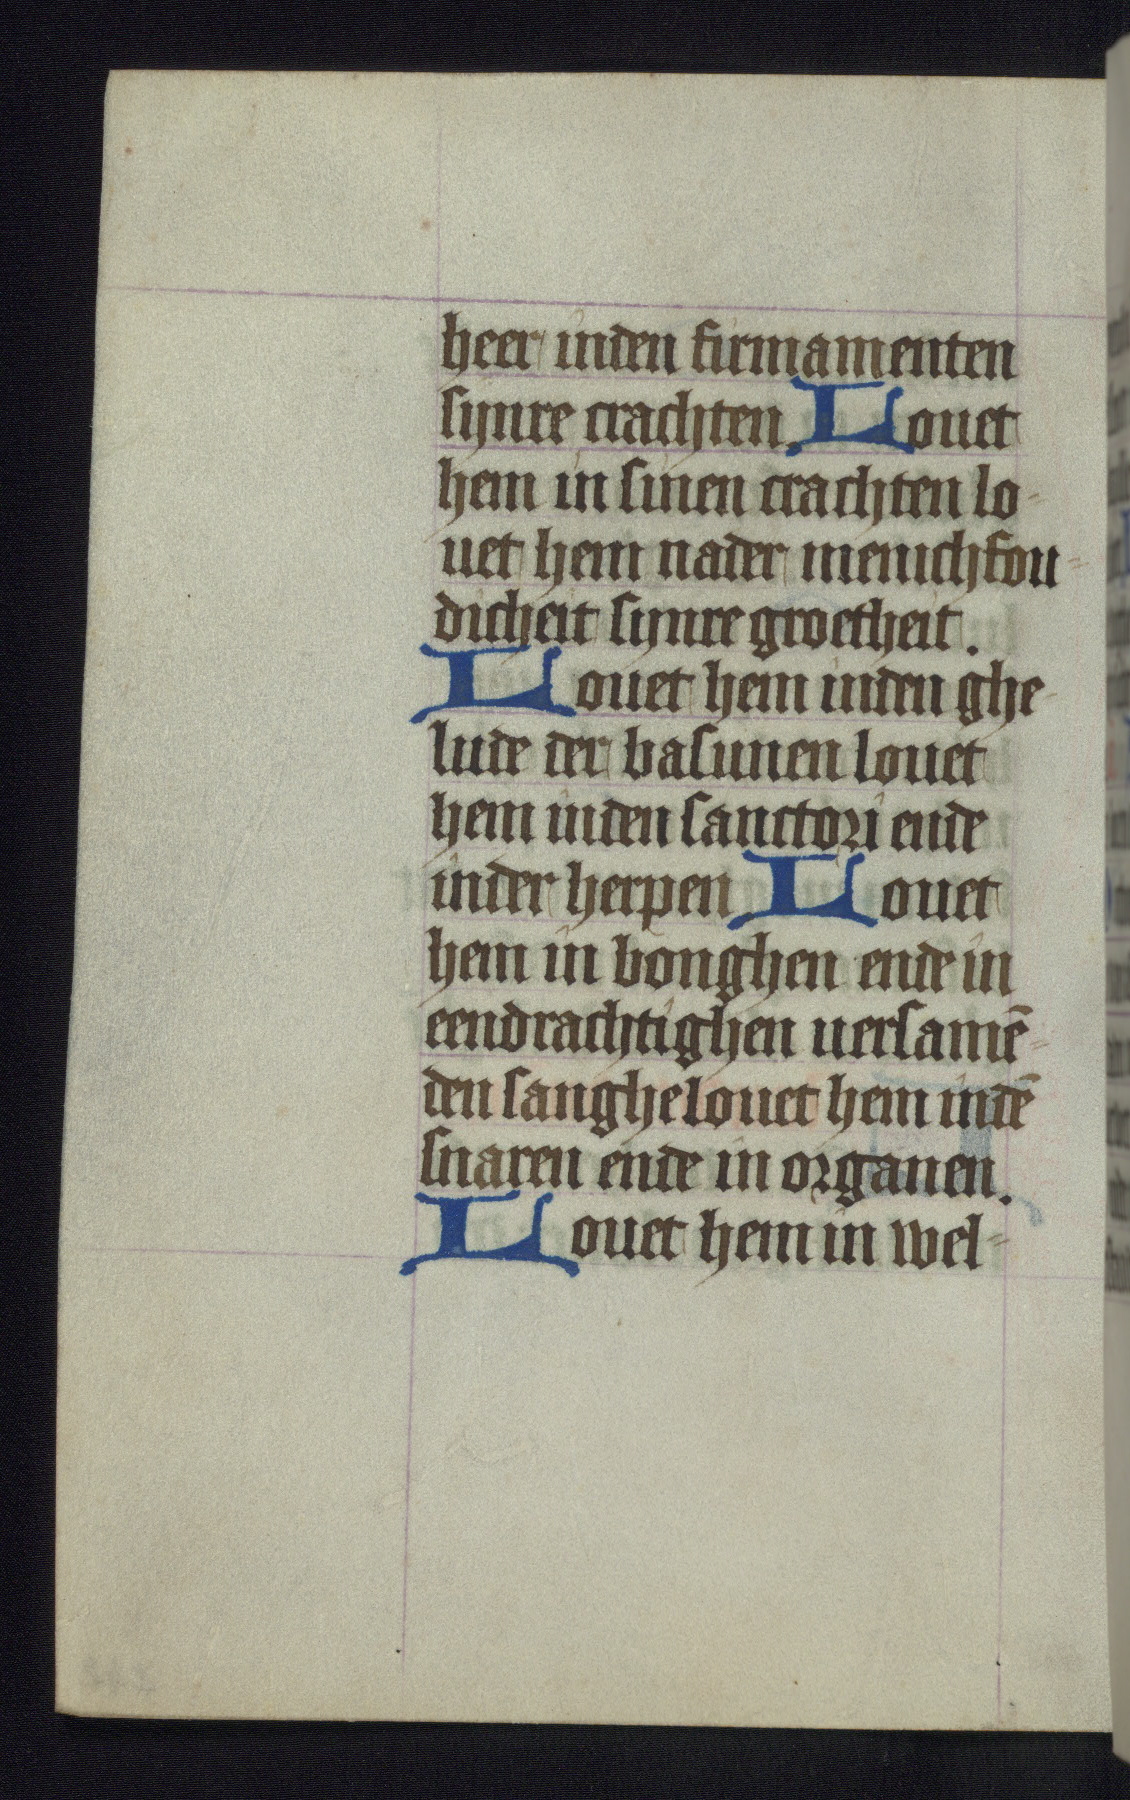 heer inden firmamenten
synre crachten. Louet
hem in sinen crachten lo-
uet hem nader menichfou-
dicheit synre groetheit.
Louet hem inden ghe-
lude der basunen louet
hem inden sanctori ende
inder herpen. Louet
hem in bonghen ende in
eendrachtighen uersamē-
den sanghe louet hem indē
snaren ende in organen.
Louet hem in wel-